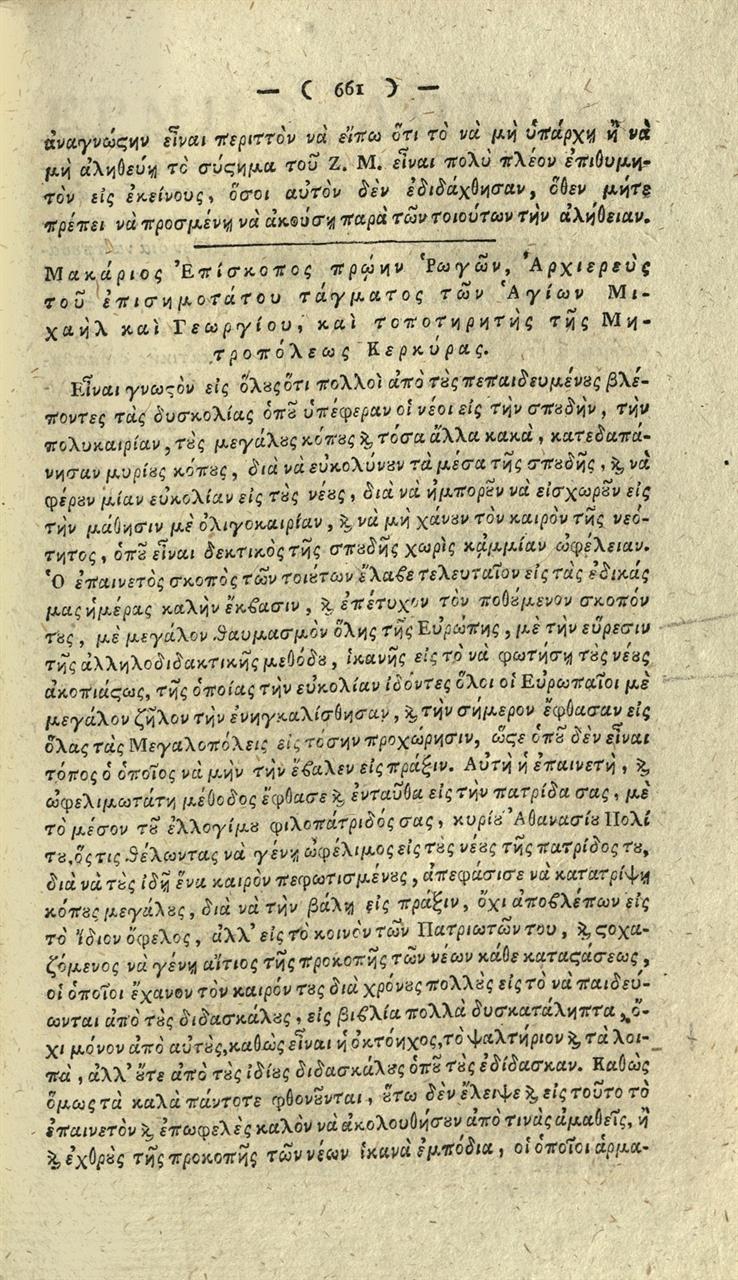 — ( 661 ) —
ἀναγνώςην εἶναι περιττὸν νὰ εἴπω ὅτι τὸ νὰ μὴ ὑπάρχῃ ἢ νὰ
μὴ ἀληθεύῃ τὸ σύςημα τοῦ Ζ. Μ. εἶναι πολὺ πλέον ἐπιθυμη-
τὸν εἰς ἐκείνους, ὅσοι αὐτὸν δὲν ἐδιδάχθησαν, ὅθεν μήτε
πρέπει νὰ προσμένῃ νὰ ἀκούσῃ παρὰ τῶν τοιούτων τὴν ἀλήθειαν.
Μακάριος Ἐπίσκοπος πρῴην Ῥωγῶν, Ἀρχιερεὺς
τοῦ ἐπισημοτάτου τάγματος τῶν Ἁγίων Μι-
χαὴλ καὶ Γεωργίου, καὶ τοποτηρητὴς τῆς Μη-
τροπόλεως Κερκύρας.
Εἶναι γνωςὸν εἰς ὅλȣς ὅτι πολλοὶ ἀπὸ τȣ̀ς πεπαιδευμένȣς βλέ-
ποντες τὰς δυσκολίας ὁπȣ͂ ὑπέφεραν οἱ νέοι εἰς τὴν σπȣδὴν, τὴν
πολυκαιρίαν, τȣ̀ς μεγάλȣς κόπȣς ϗ τόσα ἄλλα κακὰ, κατεδαπά-
νησαν μυρίȣς κόπȣς, διὰ νὰ εὐκολύνȣν τὰ μέσα τῆς σπȣδῆς, ϗ νὰ
φέρȣν μίαν εὐκολίαν εἰς τȣ̀ς νέȣς, διὰ νὰ ἠμπορȣ͂ν νὰ εἰσχωρȣ͂ν εἰς
τὴν μάθησιν μὲ ὀλιγοκαιρίαν, ϗ νὰ μὴ χάνȣν τὸν καιρὸν τῆς νεό-
τητος, ὁπȣ͂ εἶναι δεκτικὸς τῆς σπȣδῆς χωρὶς κᾀμμίαν ὠφέλειαν.
Ὁ ἐπαινετὸς σκοπὸς τῶν τοιȣ́των ἔλαβε τελευταῖον εἰς τὰς ἐδικάς
μας ἡμέρας καλὴν ἔκβασιν, ϗ ἐπέτυχον τὸν ποθȣ́μενον σκοπόν
τȣς, μὲ μεγάλον θαυμασμὸν ὅλης τῆς Εὐρώπης, μὲ τὴν εὕρεσιν
τῆς ἀλληλοδιδακτικῆς μεθόδȣ, ἱκανῆς εἰς τὸ νὰ φωτήσῃ τȣ̀ς νέȣς
ἀκοπιάςως, τῆς ὁποίας τὴν εὐκολίαν ἰδόντες ὅλοι οἱ Εὐρωπαῖοι μὲ
μεγάλον ζῆλον τὴν ἐνηγκαλίσθησαν, ϗ τὴν σήμερον ἔφθασαν εἰς
ὅλας τὰς Μεγαλοπόλεις εἰς τόσην προχώρησιν, ὥςε ὁπȣ͂ δὲν εἶναι
τόπος ὁ ὁποῖος νὰ μὴν τὴν ἔβαλεν εἰς πράξιν. Αὐτὴ ἡ ἐπαινετὴ, ϗ
ὠφελιμωτάτη μέθοδος ἔφθασε ϗ ἐνταῦθα εἰς τὴν πατρίδα σας, μὲ
τὸ μέσον τȣ͂ ἐλλογίμȣ φιλοπάτριδός σας, κυρίȣ Ἀθανασίȣ Πολί
τȣ, ὅςτις θέλωντας νὰ γένῃ ὠφέλιμος εἰς τȣ̀ς νέȣς τῆς πατρίδος τȣ,
διὰ νὰ τȣ̀ς ἰδῇ ἕνα καιρὸν πεφωτισμένȣς, ἀπεφάσισε νὰ κατατρίψῃ
κόπȣς μεγάλȣς, διὰ νὰ τὴν βάλῃ εἰς πράξιν, ὄχι ἀποβλέπων εἰς
τὸ ἴδιον ὄφελος, ἀλλ' εἰς τὸ κοινὸν τῶν Πατριωτῶν του, ϗ ςοχα-
ζόμενος νὰ γένῃ αἴτιος τῆς προκοπῆς τῶν νέων κάθε καταςάσεως,
οἱ ὁποῖοι ἔχαναν τὸν καιρόν τȣς διὰ χρόνȣς πολλȣ̀ς εἰς τὸ νὰ παιδεύ-
ωνται ἀπὸ τȣ̀ς διδασκάλȣς, εἰς βιβλία πολλὰ δυσκατάληπτα, ὄ-
χι μόνον ἀπὸ αὐτȣ̀ς, καθὼς εἶναι ἡ ὀκτόηχος, τὸ ψαλτήριον ϗ τὰ λοι-
πὰ, ἀλλ' ȣ̓́τε ἀπὸ τȣ̀ς ἰδίȣς διδασκάλȣς ὁπȣ͂ τȣ̀ς ἐδίδασκαν. Καθὼς
ὅμως τὰ καλὰ πάντοτε φθονȣ͂νται, ȣ̔́τω δὲν ἔλειψε ϗ εἰς τοῦτο τὸ
ἐπαινετὸν ϗ ἐπωφελὲς καλὸν νὰ ἀκολουθήσȣν ἀπὸ τινὰς ἀμαθεῖς, ἢ
ϗ ἐχθρȣ̀ς τῆς προκοπῆς τῶν νέων ἱκανὰ ἐμπόδια, οἱ ὁποῖοι ἁρμα-